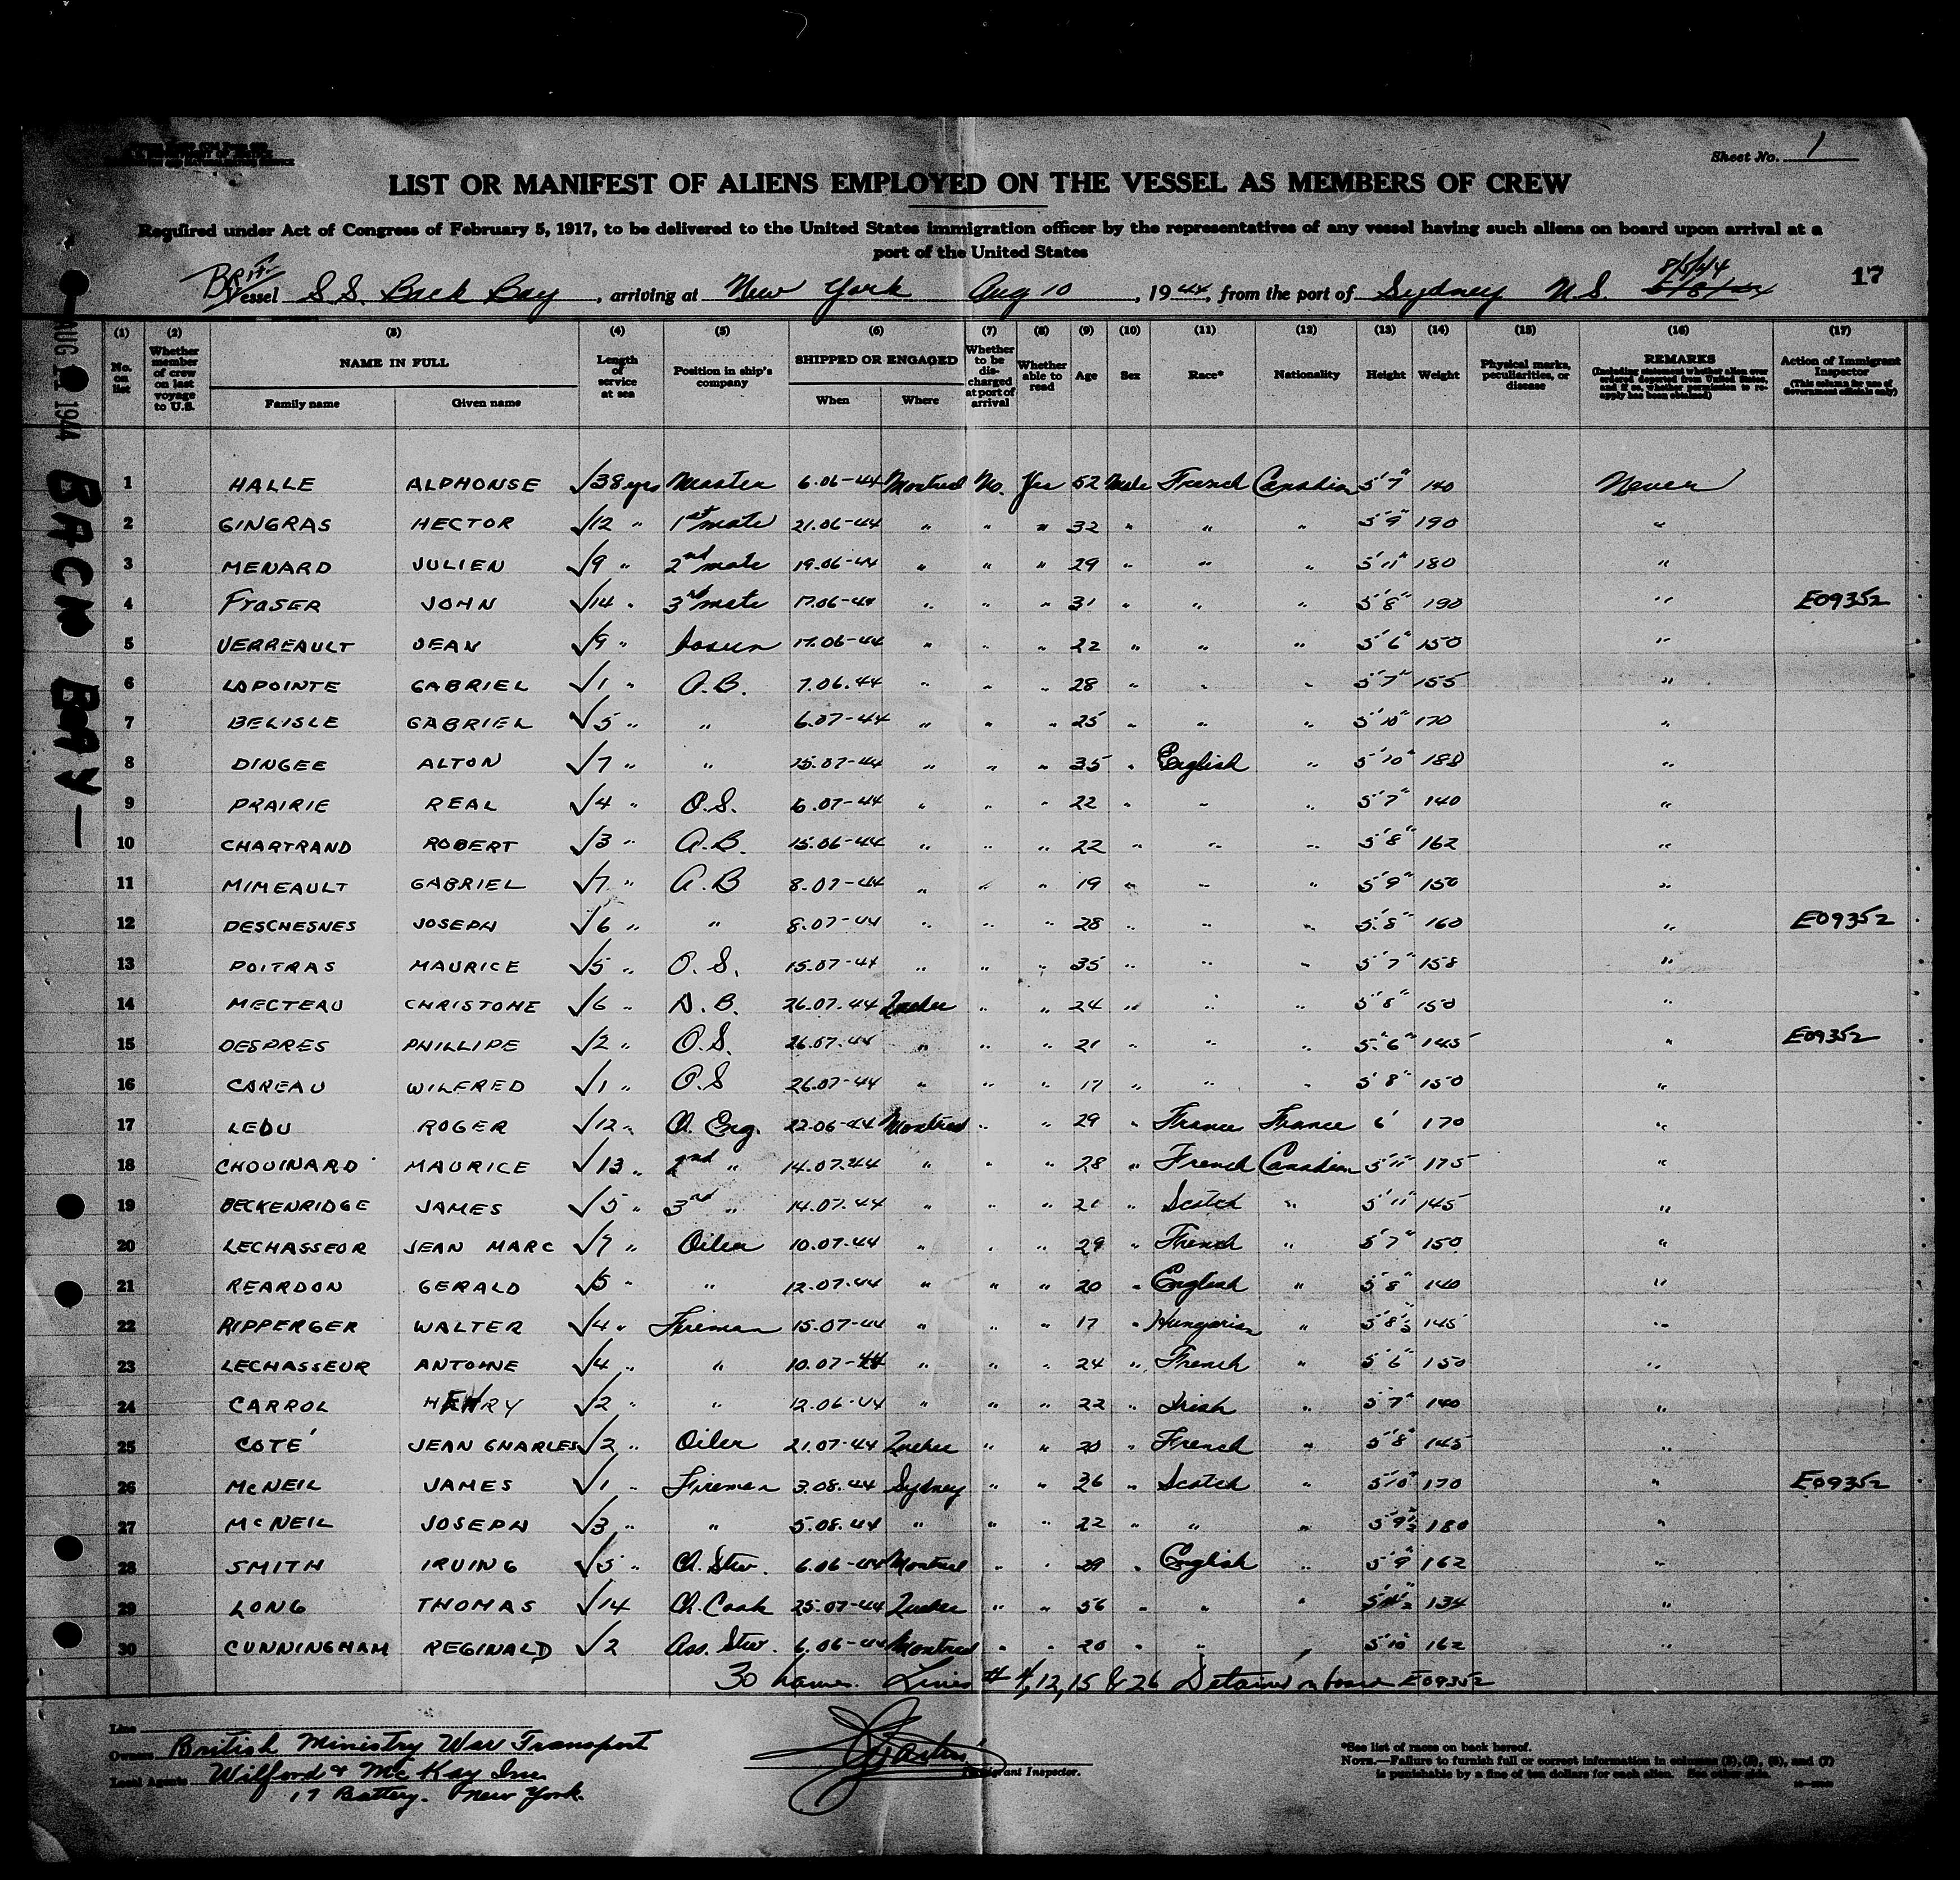 Sheet No. 1
LIST OR MANIFEST OF ALIENS EMPLOYED ON THE VESSEL AS MEMBERS OF CREW
Required under Act of Congress of February 5, 1917, to be delivered to the United States immigration officer by the representatives of any vessel having such aliens on board upon arrival at a
port of the United States
8/5/44
Brit. Vessel S.S. Back Bay, arriving at New York Aug 10, 1944, from the port of Sydney N.S. 17
(1) (2) (3) (4) (5) (6) (7) (8) (9) (10) (11) (12) (13) (14) (15) (16) (17)
No. on list Whether member of crew on last voyage to U.S. NAME IN FULL Family name Given name Length of service at sea Position in ship's company SHIPPED OR ENGAGED When Where Whether to be discharged at port of arrival Whether able to read Age Sex Race* Nationality Height Weight Physical marks, peculiarities, or disease REMARKS (Including statement whether alien ever ordered deported from United States, and if so, whether permission to reapply has been obtained) Action of Immigrant Inspector (This column for use of Government officials only)
1 HALLE ALPHONSE √38 yrs Master 6.06-44 Montreal No. Yes 52 Male French Canadian 5'7" 140 Never
2 GINGRAS HECTOR √12 " 1st mate 21.06-44 " " " 32 " " " 5'9" 190 "
3 MENARD JULIEN √9 " 2nd mate 19.06-44 " " " 29 " " " 5'11" 180 "
4 FRASER JOHN √14 " 3rd mate 17.06-44 " " " 31 " " " 5'8" 190 " E09352
5 VERREAULT JEAN √9 " bosun 17.06-44 " " " 22 " " " 5'6" 150 "
6 LAPOINTE GABRIEL √1 " A.B. 7.06.44 " " " 28 " " " 5'7" 155 "
7 BELISLE GABRIEL √5 " " 6.07-44 " " " 25 " " " 5'10" 170 "
8 DINGEE ALTON √7 " " 15.07-44 " " " 35 " English " 5'10" 188 "
9 PRAIRIE REAL √4 " O.S. 6.07-44 " " " 22 " " " 5'7" 140 "
10 CHARTRAND ROBERT √3 " A.B. 15.06-44 " " " 22 " " " 5'8" 162 "
11 MIMEAULT GABRIEL √7 " A.B 8.07-44 " " " 19 " " " 5'9" 150 "
12 DESCHESNES JOSEPH √6 " " 8.07-44 " " " 28 " " " 5'8" 160 " E09352
13 POITRAS MAURICE √5 " O.S. 15.07-44 " " " 35 " " " 5'7" 158 "
14 MECTEAU CHRISTOME √6 " A.B. 26.07.44 Quebec " " 24 " " " 5'8" 150 "
15 DESPRES PHILLIPE √2 " O.S. 26.07.44 " " " 21 " " " 5'6" 145 " E09352
16 CAREAU WILFRED √1 " O.S 26.07-44 " " " 17 " " " 5'8" 150 "
17 LEDU ROGER √12 " Ch Eng. 22.06-44 Montreal " " 29 " France France 6' 170 "
18 CHOUINARD MAURICE √13 " 2nd " 14.07.44 " " " 28 " French Canadian 5'11" 175 "
19 BECKENRIDGE JAMES √5 " 3rd " 14.07.44 " " " 21 " Scotch " 5'11" 145 "
20 LECHASSEOR JEAN MARC √7 " Oiler 10.07.44 " " " 29 " French " 5'7" 150 "
21 REARDON GERALD √5 " " 12.07.44 " " " 20 " English " 5'8" 140 "
22 RIPPERGER WALTER √4 " Fireman 15.07-44 " " " 17 " Hungarian " 5'8½ 145 "
23 LECHASSEUR ANTOINE √4 " " 10.07-44 " " " 24 " French " 5'6" 150 "
24 CARROL HENRY √2 " " 12.06-44 " " " 22 " Irish " 5'7" 140 "
25 COTÉ JEAN CHARLES √2 " Oiler 21.07-44 Quebec " " 20 " French " 5'8" 145 "
26 McNEIL JAMES √1 " Fireman 3.08.44 Sydney " " 36 " Scotch " 5'10" 170 " E09352
27 McNEIL JOSEPH √3 " " 5.08.44 " " " 22 " " " 5'9½ 180 "
28 SMITH IRVING √5 " Ch. Stw. 6.06-44 Montreal " " 29 " English " 5'9" 162 "
29 LONG THOMAS √14 Ch. Cook 25.07-44 Quebec " " 56 " " " 134 "
30 CUNNINGHAM REGINALD √2 Ass. Stw. 6.06-44 Montreal " " 20 " " " 5'10" 162 "
30 names. Lines # 4, 12, 15 & 26 Detained on board E09352
Line
Owners British Ministry War Transport
Local Agents Wilford & McKay Inc
17 Battery. New York.
Immigrant Inspector.
*See list of races on back hereof.
NOTE.—Failure to furnish full or correct information in columns (2), (5), (6), and (7)
is punishable by a fine of ten dollars for each alien. See other side.
AUG 11 1944 BACK BAY —